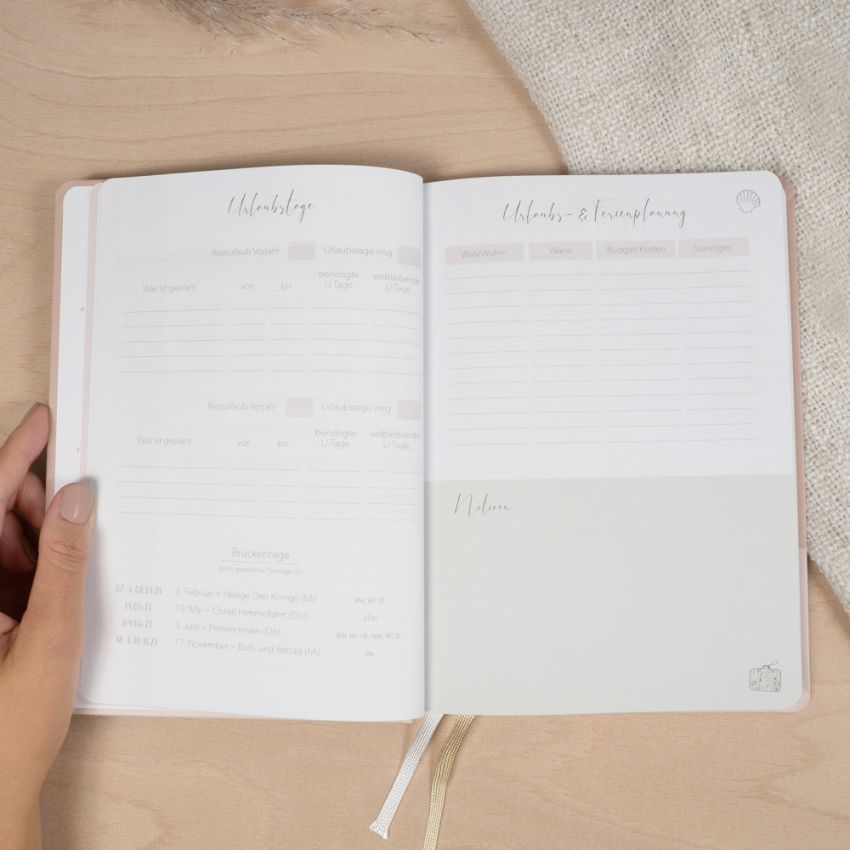 Urlaubstage
Resturlaub Vorjahr Urlaubstage insg.
Was ist geplant von bis benötigte U-Tage verbleibende U-Tage
Resturlaub Vorjahr Urlaubstage insg.
Was ist geplant von bis benötigte U-Tage verbleibende U-Tage
Brückentage
durch gesetzliche Feiertage (D)
07. & 08.01.21 6. Februar = Heilige Drei Könige (Mi) BW, BY, ST
14.05.21 13. Mai = Christi Himmelfahrt (Do) alle
04.06.21 3. Juni = Fronleichnam (Do) BW, BY, HE, NW, RP, SL
18. & 19.11.21 17. November = Buß- und Bettag (Mi) SN
Urlaubs- & Ferienplanung
Was/Wohin Wann Budget/Kosten Sonstiges
Notizen